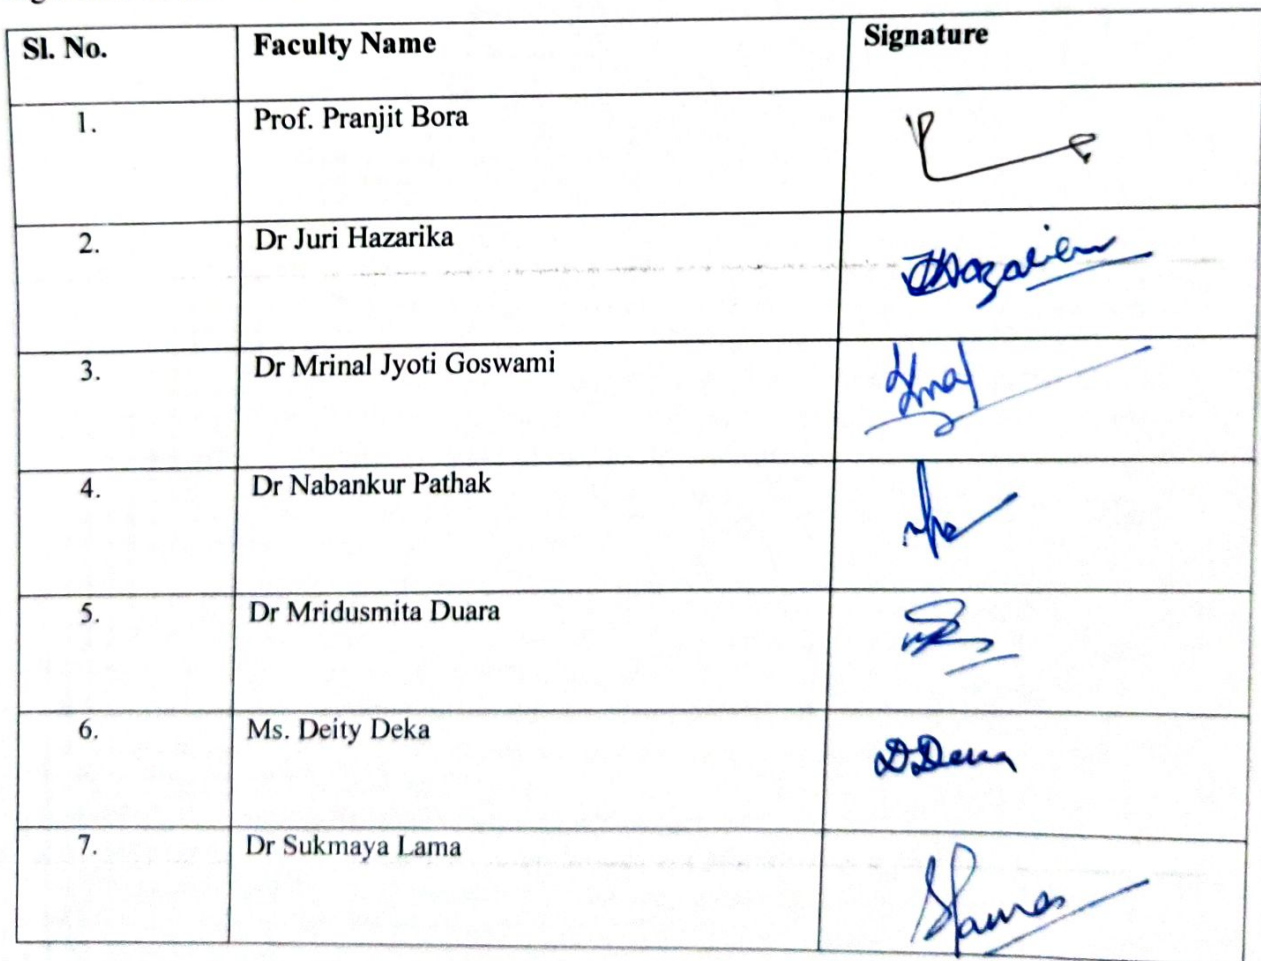 Sl. No. Faculty Name Signature
1. Prof. Pranjit Bora
2. Dr Juri Hazarika
3. Dr Mrinal Jyoti Goswami
4. Dr Nabankur Pathak
5. Dr Mridusmita Duara
6. Ms. Deity Deka D Deka
7. Dr Sukmaya Lama